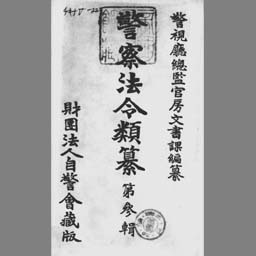 警視廳總監官房文書課編纂
警察法令類纂 第參輯
財團法人自警會藏版